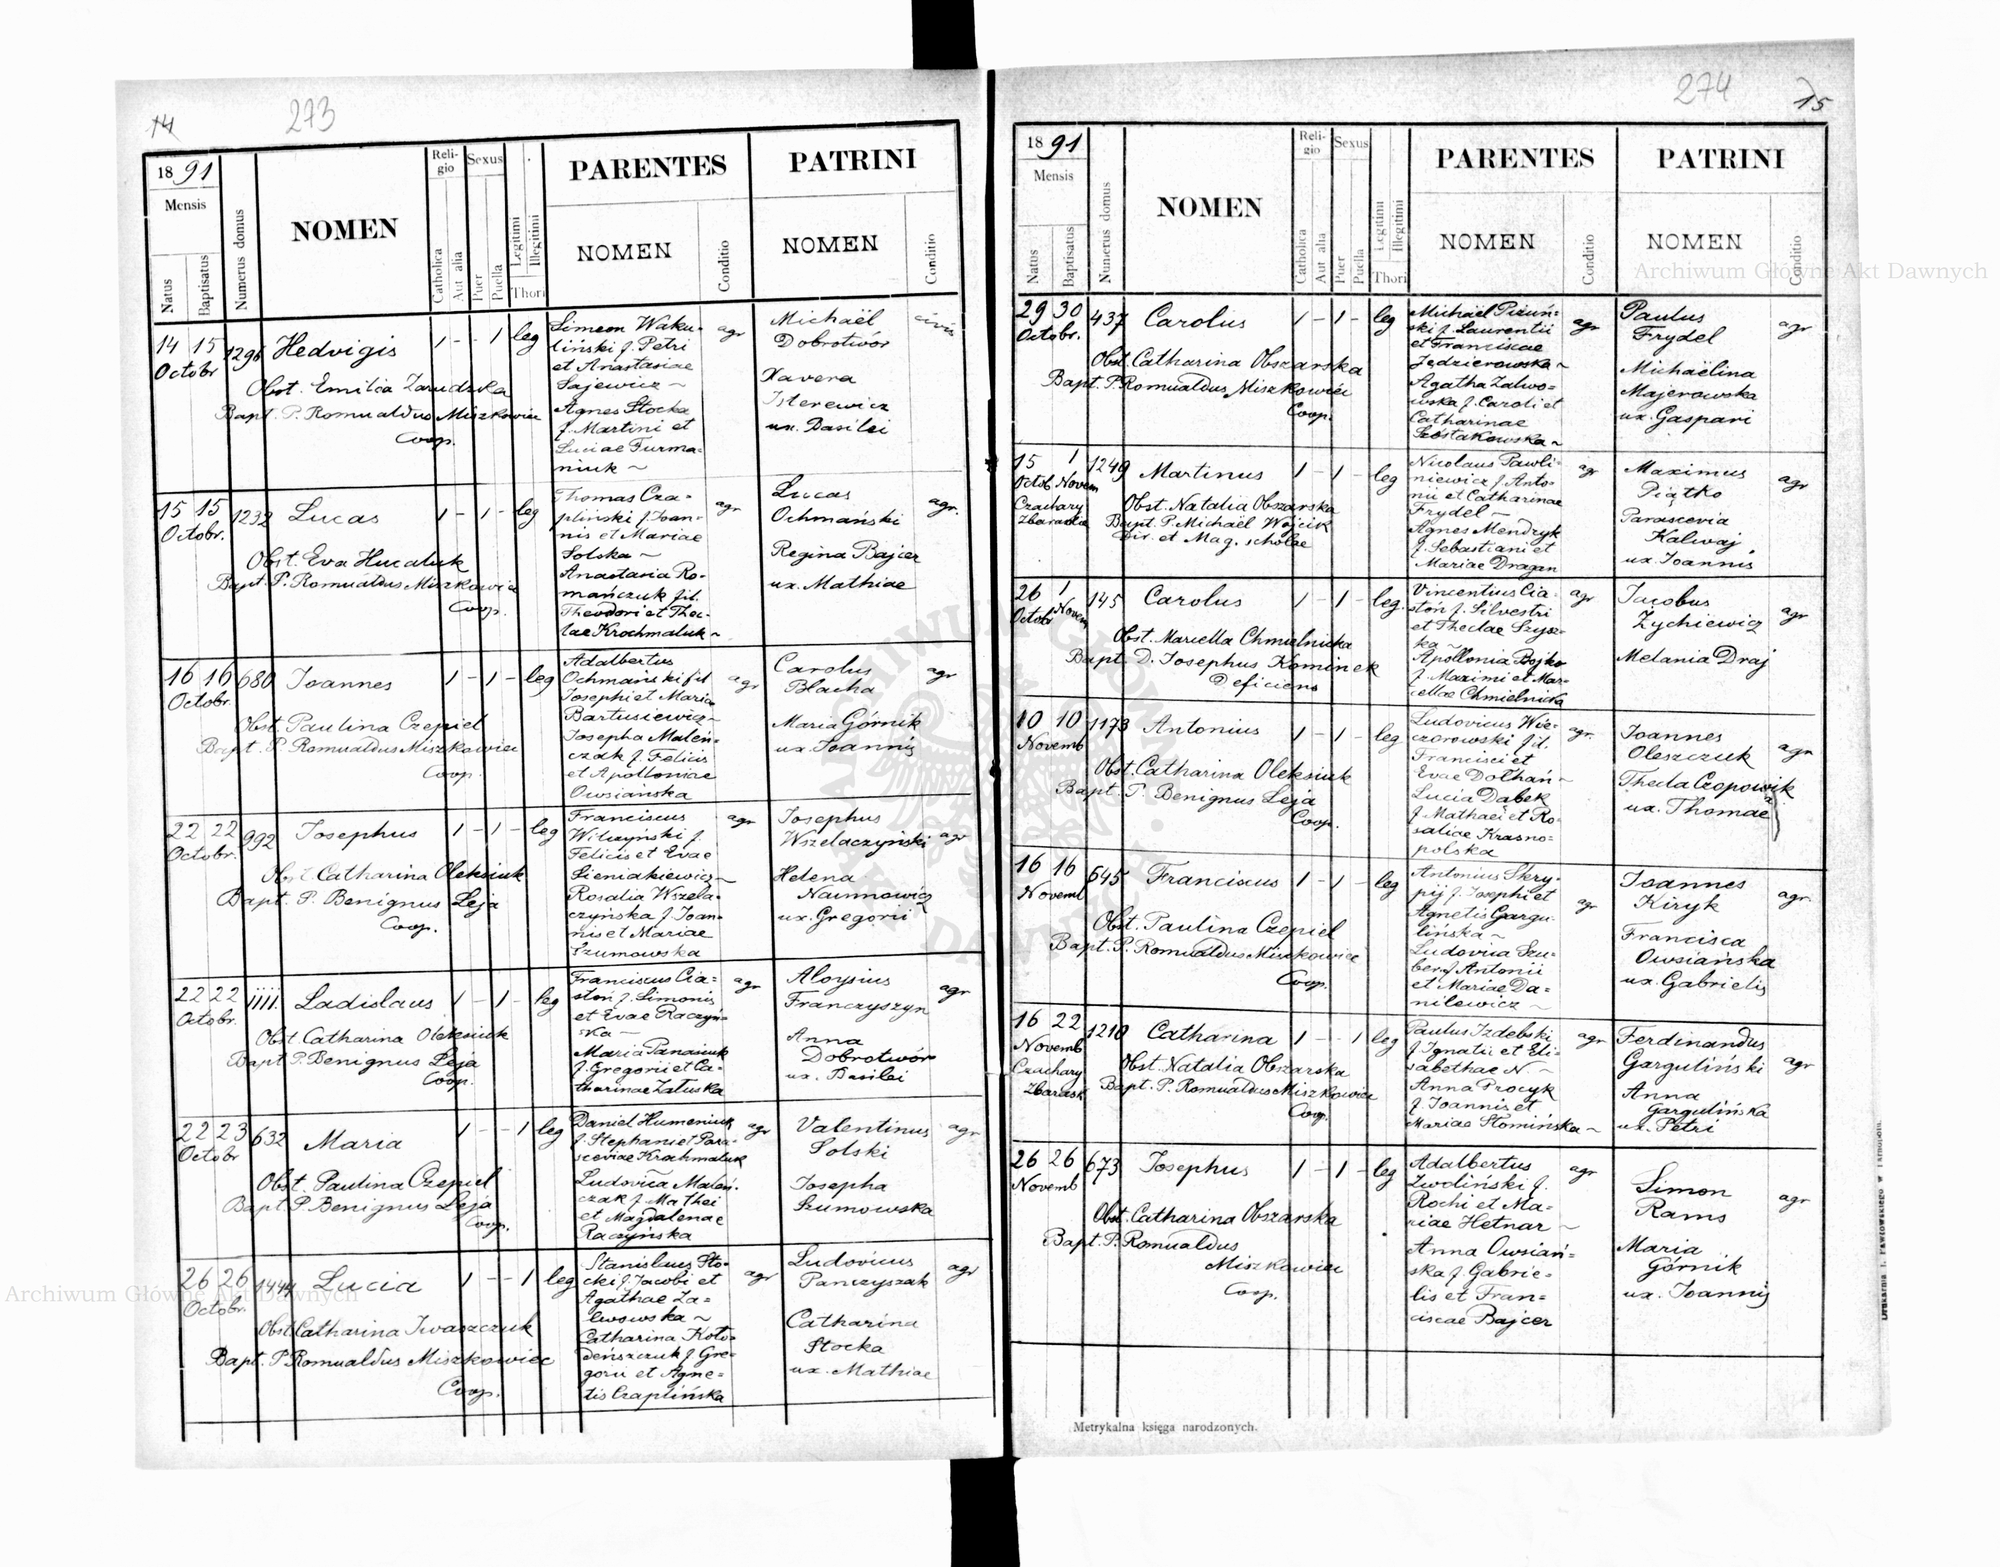 14
273
1891
Mensis
Natus
Baptisatus
Numerus domus
NOMEN
Religio
Catholica
Aut alia
Sexus
Puer
Puella
Legitimi
Illegitimi
Thori
PARENTES
NOMEN
Conditio
PATRINI
NOMEN
Conditio
14 15 Octobr
Hedvigis
1 - - 1 leg
Obst. Emilia Zarudzka
Bapt. P. Romualdus Miszkowiec
Coop.
Simeon Waku-
liński f. Petri
et Anastasiae
Sajewicz ~
Agnes Stocka
f. Martini et
Luciae Furma-
niuk ~
agr
Michaël
Dobrotwór
Xavera
Isterewicz
ux. Basilei
civis
15 15 Octobr.
1232
Lucas
1 - 1 - leg
Obst. Eva Hucaluk
Bapt. P. Romualdus Miszkowiec
Coop.
Thomas Cza-
pliński f. Joan-
nis et Mariae
Solska ~
Anastasia Ro-
mańczuk fil.
Theodori et Thec-
lae Krochmaluk ~
agr
Lucas
Ochmański
Regina Bajcer
ux. Mathiae
agr.
16 16 Octobr.
680
Joannes
1 - 1 - leg
Obst. Paulina Czepiel
Bapt. P. Romualdus Miszkowiec
Coop.
Adalbertus
Ochmański fil
Josephi et Maria
Bartusiewicz ~
Josepha Maleń-
czak f. Felicis
et Apolloniae
Owsiańska
agr
Carolus
Blacha
Maria Górnik
ux. Joannis
agr
22 22 Octobr.
992
Josephus
1 - 1 - leg
Obst. Catharina Oleksiuk
Bapt. P. Benignus Leja
Coop.
Franciscus
Wilczyński f.
Felicis et Evae
Sieniakiewicz ~
Rosalia Wszela-
czyńska f. Joan-
nis et Mariae
Szumowska
agr
Josephus
Wszelaczyński
Helena
Naumowicz
ux. Gregorii
agr
22 22 Octobr.
1111.
Ladislaus
1 - 1 - leg
Obst. Catharina Oleksiuk
Bapt. P. Benignus Leja
Coop.
Franciscus Cia-
stoń f. Simonis
et Evae Raczyń-
ska ~
Maria Panasiuk
f. Gregorii et Ca-
tharinae Załuska
agr
Aloysius
Franczyszyn
Anna
Dobrotwór
ux. Basilei
agr
22 23 Octobr
632
Maria
1 - - 1 leg
Obst. Paulina Czepiel
Bapt. P. Benignus Leja
Coop.
Daniel Humeniuk
f. Stephani et Para-
sceviae Krochmaluk
Ludovica Maleń-
czak f. Mathei
et Magdalenae
Raczyńska
agr
Valentinus
Solski
Josepha
Szumowska
agr
26 26 Octobr.
1444
Lucia
1 - - 1 leg
Obst. Catharina Iwaszczuk
Bapt. P. Romualdus Miszkowiec
Coop.
Stanislaus Sto-
cki f. Jacobi et
Agathae Za-
lwowska ~
Catharina Koło-
deńszczuk f. Gre-
gorii et Agne-
tis Czaplińska
agr
Ludovicus
Panczyszak
Catharina
Stocka
ux. Mathiae
agr
274
15
1891
Mensis
Natus
Baptisatus
Numerus domus
NOMEN
Religio
Catholica
Aut alia
Sexus
Puer
Puella
Legitimi
Illegitimi
Thori
PARENTES
NOMEN
Conditio
PATRINI
NOMEN
Conditio
29 30 Octobr.
437
Carolus
1 - 1 - leg
Obst. Catharina Obszarska
Bapt. P. Romualdus Miszkowiec
Coop.
Michaël Pizuń-
ski f. Laurentii
et Franciscae
Jędzierowska ~
Agatha Zalwo-
wska f. Caroli et
Catharinae
Szóstakowska ~
agr
Paulus
Frydel
Michaëlina
Majerowska
ux. Gaspari
agr
15 1
Octob. Novem
Czachary
Zbaraskie
1249
Martinus
1 - 1 - leg
Obst. Natalia Obszarska
Bapt. P. Michaël Wójcik
Dir. et Mag. scholae
Nicolaus Pawli-
niewicz f. Anto-
nii et Catharinae
Frydel ~
Agnes Mendryk
f. Sebastiani et
Mariae Dragan
agr
Maximus
Piątko
Parascevia
Kalwaj
ux. Joannis
agr
26 1
Octobr Novem
145
Carolus
1 - 1 - leg.
Obst. Marcella Chmielnicka
Bapt. D. Josephus Kominek
Deficiens
Vincentius Cia-
stoń f. Silvestri
et Theclae Szysz-
ka ~
Apollonia Bojko
f. Maximi et Mar-
cellae Chmielnicka
agr
Jacobus
Zychiewicz
Melania Draj
agr
10 10 Novemb
1173
Antonius
1 - 1 - leg
Obst. Catharina Oleksiuk
Bapt. P. Benignus Leja
Coop.
Ludovicus Wie-
czorowski fil.
Francisci et
Evae Dołhań ~
Lucia Dąbek
f. Mathaei et Ro-
saliae Krasno-
polska
agr.
Joannes
Oleszczuk
Thecla Czopowik
ux. Thomae
agr
16 16 Novemb
645
Franciscus
1 - 1 - leg
Obst. Paulina Czepiel
Bapt. P. Romualdus Miszkowiec
Coop.
Antonius Skry-
pij f. Josephi et
Agnetis Gargu-
lińska ~
Ludovica Szu-
ber f. Antonii
et Mariae Da-
nilewicz ~
agr
Joannes
Kiryk
Francisca
Owsiańska
ux. Gabrielis
agr.
16 22
Novemb
Czachary
Zbarask
1210
Catharina
1 - - 1 leg
Obst. Natalia Obszarska
Bapt. P. Romualdus Miszkowiec
Coop.
Paulus Izdebski
f. Ignatii et Eli-
sabethae N. ~
Anna Procyk
f. Joannis et
Mariae Słomińska ~
agr
Ferdinandus
Garguliński
Anna
Gargulińska
ux. Petri
agr
26 26 Novemb
673
Josephus
1 - 1 - leg
Obst. Catharina Obszarska
Bapt. P. Romualdus
Miszkowiec
Coop.
Adalbertus
Zwoliński f.
Rochi et Ma-
riae Hetnar ~
Anna Owsiań-
ska f. Gabrie-
lis et Fran-
ciscae Bajcer
agr
Simon
Rams
Maria
Górnik
ux. Joannis
agr
Metrykalna księga narodzonych.
Drukarnia J. Pawłowskiego w Tarnopolu.
Archiwum Główne Akt Dawnych
Archiwum Główne Akt Dawnych
ARCHIWUM GŁÓWNE AKT DAWNYCH